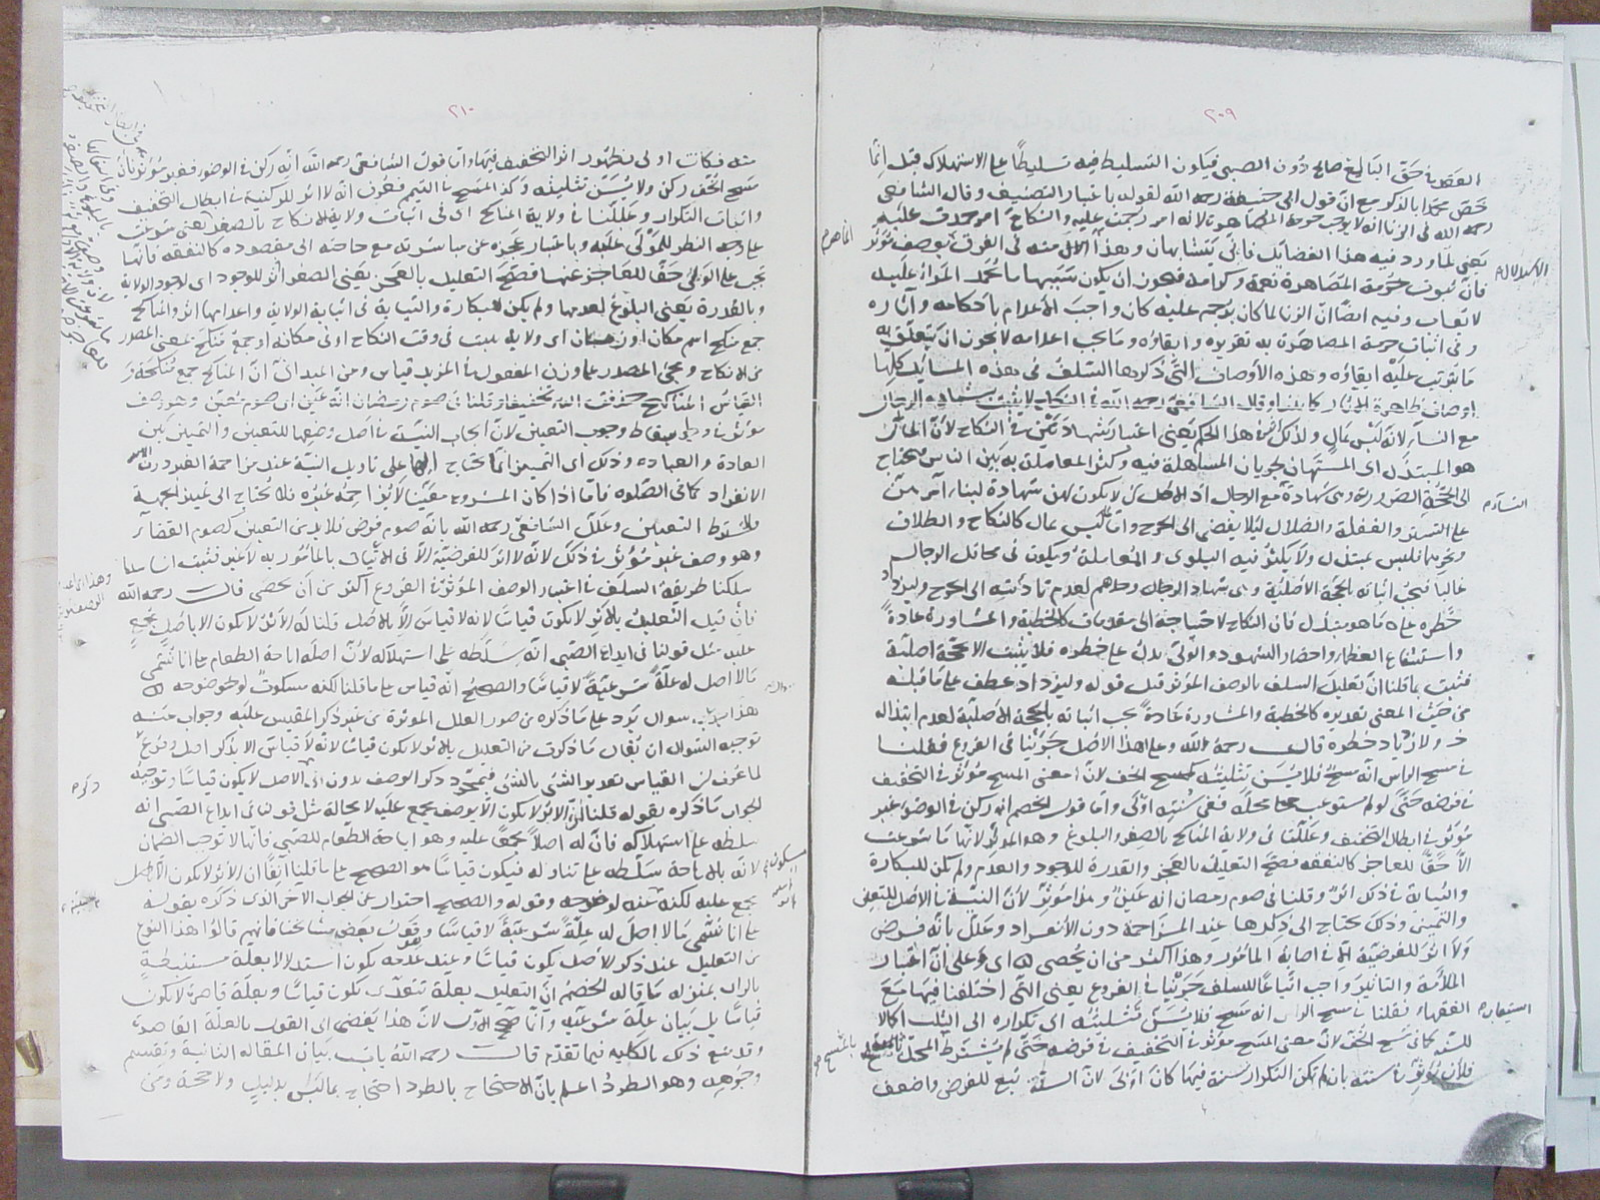 ٢٠٩
العقل في حق البالغ صالح دون الصبي فيكون التسليط فيه تسليطا على الاستهلاك قيل انما
خص محمدا بالذكر مع ان قول ابي حنيفة رحمه الله كقوله باعتبار التصنيف وقال الشافعي
رحمه الله في الزنا انه لا يوجب حرمة المصاهرة لانه امر رجمت عليه والنكاح امر حمدت عليه
يعني لما ورد فيه هذا الفضايل فاني يتشابهان وهذا استدلال منه في الفرق بوصف مؤثر
فان ثبوت حرمة المصاهرة نعمة وكرامة فيجوز ان يكون سببها ما يحمد المرء عليه
لا يعاب وفيه ايضا ان الزنا لما كان يرجم عليه كان واجب الاعدام باحكامه وآثاره
وفي اثبات حرمة المصاهرة به تقريره وابقاؤه وما يجب اعدامه لا يجوز ان يتعلق به
ما يترتب عليه ابقاؤه وهذه الأوصاف التي ذكرها السلف في هذه المسائل كلها
اوصاف ظاهرة الآثار كما بينا وقال الشافعي رحمه الله في النكاح لا يثبت بشهادة الرجال
مع النساء لانه ليس بمال ولذلك اثر في هذا الحكم يعني اعتبار شهادتهن في النكاح لأن المال
هو المبتذل اي المستهان لجريان المساهلة فيه وكثرة المعاملة به بين الناس فيحتاج
الى الحجة الضرورية وهي شهادة مع الرجال اذ الاصل ان لا يكون لهن شهادة لبناء امرهن
على التستر والغفلة والضلال لئلا يفضي الى الحرج واما ليس بمال كالنكاح والطلاق
ونحوهما فليس بمبتذل ولا يكثر فيه البلوى والمعاملة ويكون في محافل الرجال
غالبا فيجب اثباته بالحجة الأصلية وهي شهادة الرجال وحدهم لعدم تأديته الى الحرج وليزداد
خطره على ما هو مبتذل فان النكاح لاحتياجه الى مقدمات كالخطبة والمشاورة عادة
واستشفاع العظماء واحضار الشهود والولي يدل على خطره فلا يثبت الا بحجة اصلية
فثبت بما قلنا ان تعليل السلف بالوصف المؤثر قيل قوله وليزداد عطف على ما قبله
من حيث المعنى تقديره كالخطبة والمشاورة عادة يجب اثباته بالحجة الأصلية لعدم ابتذاله
ولازدياد خطره قال رحمه الله وعلى هذا الاصل جرينا في الفروع فقلنا
في مسح الراس انه مسح فلا يسن تثليثه كمسح الخف لان معنى المسح مؤثر في التخفيف
في فرضه حتى لم يستوعب محله ففي سنته اولى واما قول الخصم انه ركن في الوضوء غير
مؤثر في ابطال التخفيف وعللنا في ولاية المناكح بالصغر والبلوغ وهو المؤثر لانها ما شرعت
الا حقا للعاجز كالنفقة فصح التعليل بالعجز والقدرة للوجود والعدم ولم يكن للبكارة
والثيابة في ذلك اثر وقلنا في صوم رمضان انه عين وهذا مؤثر لأن النية في الاصل للتعيين
والتمييز وذلك يحتاج الى ذكرها عند المزاحمة دون الأنفراد وعلل بأنه فرض
ولا اثر للفرضية الا في اصابة المأمور وهذا اكثر من ان يحصى اي وعلى ان اعتبار
الملائمة والتأثير واجب اتباعا للسلف جرينا في الفروع يعني التي اختلفنا فيها مع
الفقهاء فقلنا في مسح الراس انه مسح فلا يسن تثليثه اي تكراره الى الثلث اكمالا
للسنة كما في مسح الخف لان معنى المسح مؤثر في التخفيف في فرضه حتى لم يشترط المحل
فلأن يؤثر في سنته بان لم يكن التكرار سنة فيها كان اولى لان السنة تبع للفرض واضعف
استيعابه
٢١٠
منه فكانت اولى بظهور اثر التخفيف فيها واما قول الشافعي رحمه الله انه ركن في الوضوء فغير مؤثر فان
مسح الخف ركن ولا يسن تثليثه وكذا المسح في التيمم فعرف انه لا اثر للركنية في ابطال التخفيف
واثبات التكرار وعللنا في ولاية المناكح اي في اثبات ولاية الانكاح بالصغر يعني شرعت
على وجه النظر للمولى عليه وباعتبار عجزه عن مباشرته مع حاجته الى مقصوده كالنفقة فانها
تجب على الولي حقا للعاجز عنها فصح التعليل بالعجز يعني الصغر اثر للوجود اي لوجود الولاية
وبالقدرة يعني البلوغ لعدمها ولم يكن للبكارة والثيابة في اثباته الولاية واعدامها اثر والمناكح
جمع منكح اسم مكان او زمان اي ولاية يثبت في وقت النكاح او في مكانه او جمع منكح بمعنى المصدر
من الانكاح ومجيء المصدر على وزن المفعول في المزيد قياس ومن الميداني ان المناكح جمع منكحة و
القياس المناكيح حذفت الياء تخفيفا وقلنا في صوم رمضان انه عين اي صوم معين وهو وصف
مؤثر في اسقاط وجوب التعيين لان ايجاب النية في اصل وضعها للتعيين والتمييز بين
العادة والعبادة وذلك اي التمييز انما يحتاج اليها عند مزاحمة الغير دون
الانفراد كما في الصلوة فاما اذا كان المشروع معينا لا يزاحمه غيره فلا يحتاج الى تمييز الجهة
ولا يشترط التعيين وعلل الشافعي رحمه الله بانه صوم فرض فلا بد من التعيين كصوم القضاء
وهو وصف غير مؤثر في ذلك لانه لا اثر للفرضية الا في الاتيان بالمأمور به لا غير فثبت انا
سلكنا طريقة السلف في اعتبار الوصف المؤثر في الفروع اكثر من ان يحصى قال رحمه الله
فان قيل التعليل بالاثر لا يكون قياسا لانه لا قياس الا بالاصل قلنا له الاثر لا يكون الا باصل مجمع
عليه مثل قولنا في ايداع الصبي انه سلطه على استهلاكه لان اصله اباحة الطعام على انا نسمي
ما لا اصل له علة شرعية لا قياسا والصحيح انه قياس على ما قلنا لكنه مسكوت لوضوحه
هذا سؤال يرد على ما ذكره من صور العلل المؤثرة من غير ذكر المقيس عليه وجواب عنه
توجيه السؤال ان يقال ما ذكرت من التعليل بالاثر لا يكون قياسا لانه لا قياس الا بذكر اصل وفرع
لما عرف ان القياس تقدير الشيء بالشيء فبمجرد ذكر الوصف بدون الاصل لا يكون قياسا وتوجيه
الجواب ما ذكره بقوله قلنا الاثر لا يكون الا بوصف مجمع عليه لا محالة مثل قولنا في ايداع الصبي انه
سلطه على استهلاكه فان له اصلا مجمعا عليه وهو اباحة الطعام للصبي فانها لا توجب الضمان
لانه بالاباحة سلطه على تناوله فيكون قياسا هو الصحيح على ما قلنا آنفا ان الاثر لا يكون الا باصل
مجمع عليه لكنه عنه لوضوحه وقوله والصحيح احتراز عن الجواب الآخر الذي ذكره بقوله
على انا نسمي ما لا اصل له علة شرعية لا قياسا وقول بعض مشايخنا فانهم قالوا هذا النوع
من التعليل عند ذكر الأصل يكون قياسا وعند عدمه يكون استدلالا بعلة مستنبطة
بالرأي بمنزلة ما قاله الخصم ان التعليل بعلة تتعدى يكون قياسا وبعلة قاصرة لا يكون
قياسا بل بيان علة شرعية وانما صح الأول لان هذا يفضي الى القول بالعلة القاصرة
وقد منع ذلك بالكلية فيما تقدم قال رحمه الله باب بيان المقالة الثانية وتقسيم
وجوهه وهو الطرد اعلم بان الاحتجاج بالطرد احتجاج بما ليس بدليل ولا حجة ومن